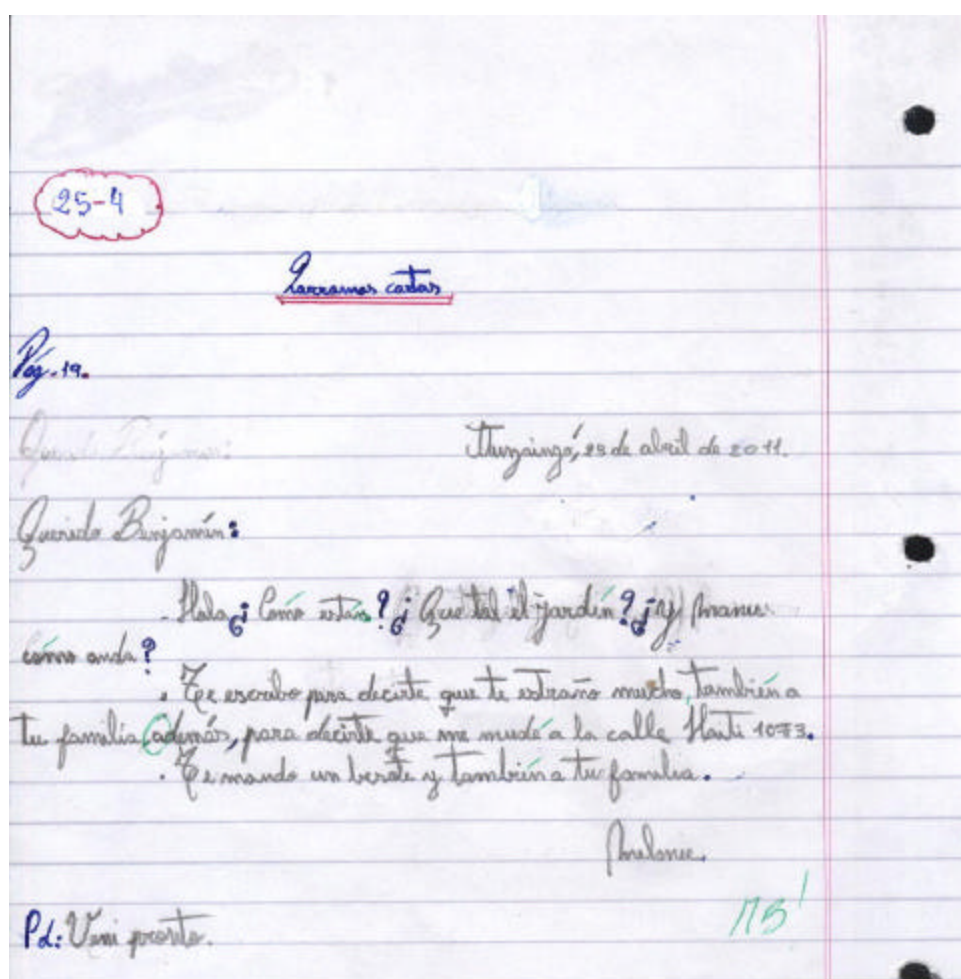 25-4
Narramos cartas
Pág. 19.
Querido Benjamín:
Ituzaingó, 25 de abril de 2011.
Querido Benjamín:
- Hola ¿Cómo estás? ¿Que tal el jardín? ¿y Manu
cómo anda?
. Te escribo para decirte que te extraño mucho, también a
tu familia, además, para decirte que me mudé a la calle Haití 1073.
. Te mando un besote y también a tu familia.
Melanie.
Pd: Vení pronto.